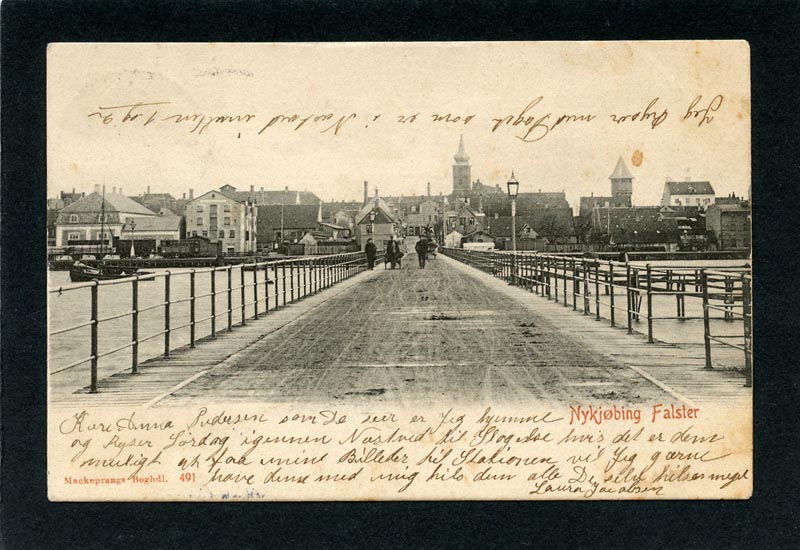 Jeg Ryser med Toget som er i Næstved imellem 1 og 2
Nykjøbing Falster
Kære Anna Pedersen som De seer er Jeg hjemme
og Ryser Lørdag igennem Næstved til Slagelse hvis det er dem
muligt at faa mine Billeder til Stationen vil Jeg gærne
have dem med mig hils dem alle De selv hilses meget
Laura Jacobsen
Mackeprangs Boghdl. 491